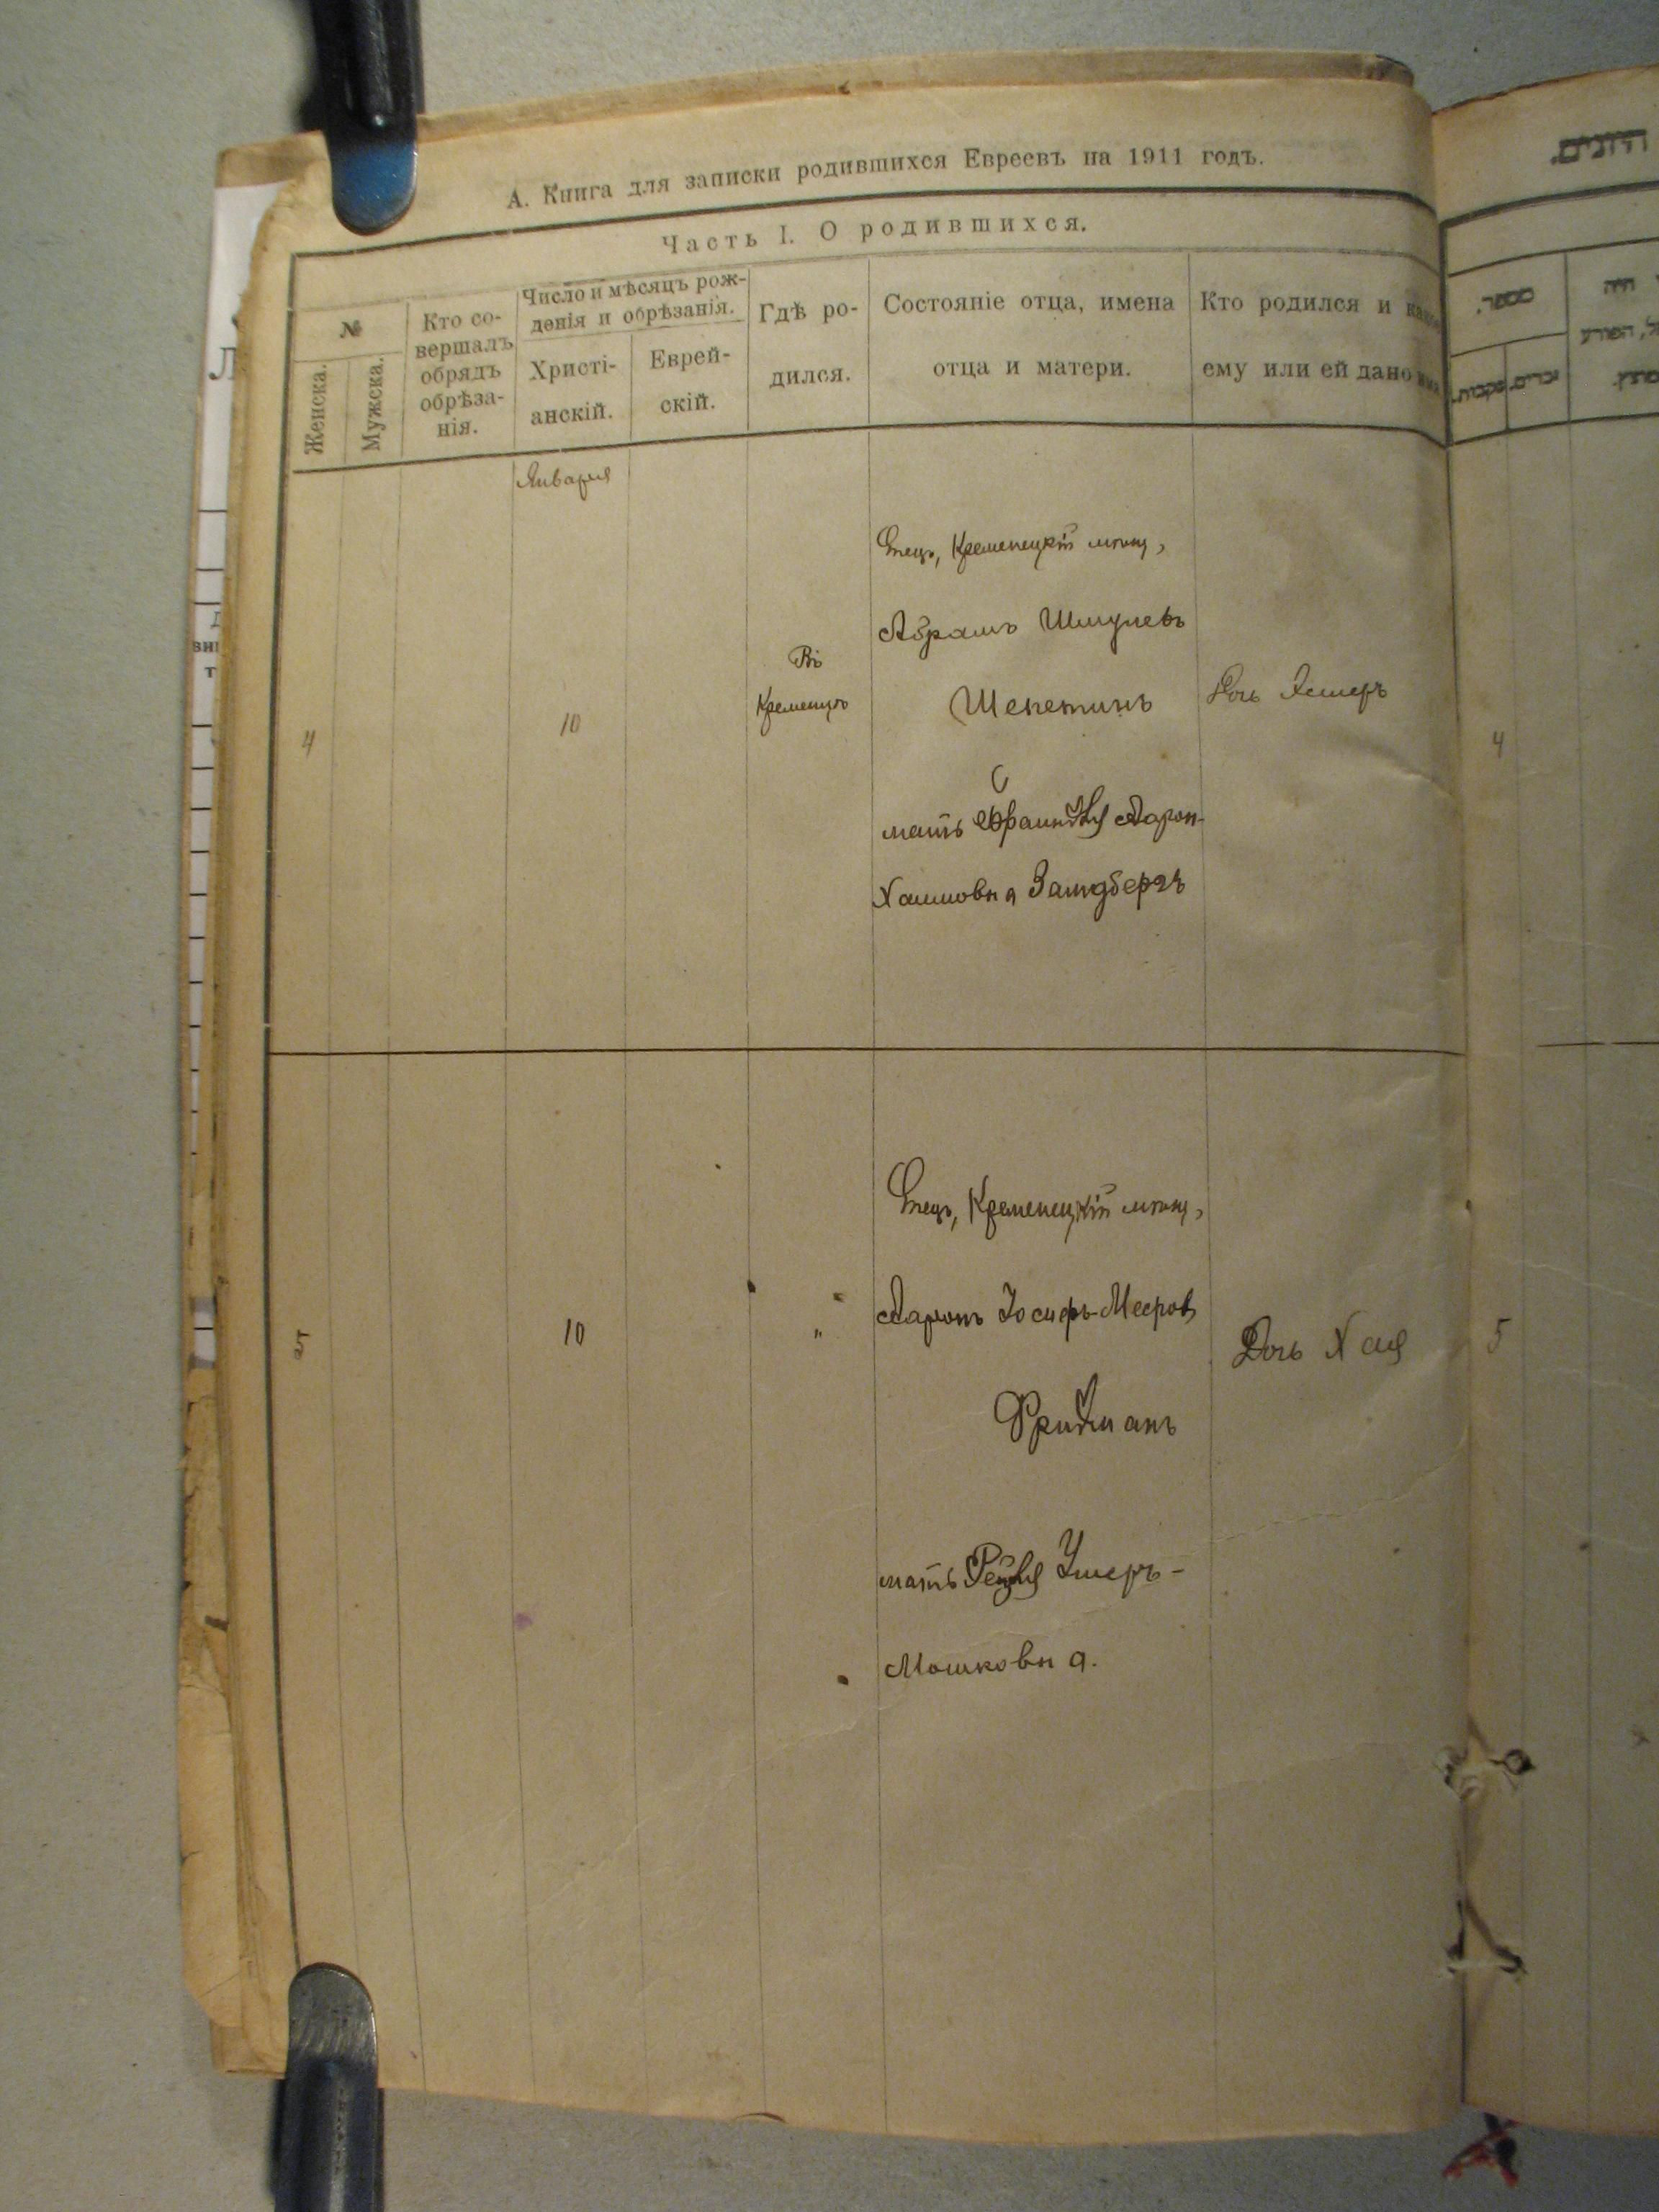 А. Книга для записки родившихся Евреевъ на 1911 годъ.
Часть I. О родившихся.
№
Женска.
Мужска.
Кто со-
вершалъ
обрядъ
обрѣза-
нія.
Число и мѣсяцъ рож-
денія и обрѣзанія.
Христі-
анскій.
Еврей-
скій.
Гдѣ ро-
дился.
Состояніе отца, имена
отца и матери.
Кто родился и
ему или ей дано
Января
4
10
Въ
Кременцѣ
Отецъ, Кременецкій мѣщ,
Абрамъ Шмулевъ
Шепетинъ
мать Фраинъдля Аарон-
Хаимовна Занъдбергъ
Дочь Эстеръ
4
5
10
"
Отецъ, Кременецкій мѣщ,
Ааронъ Іосифъ-Мееровъ
Фридманъ
мать Рейзля Ушеръ-
Мошковна.
Дочь Хая
5
מספר.
נקבות.
זכרים.